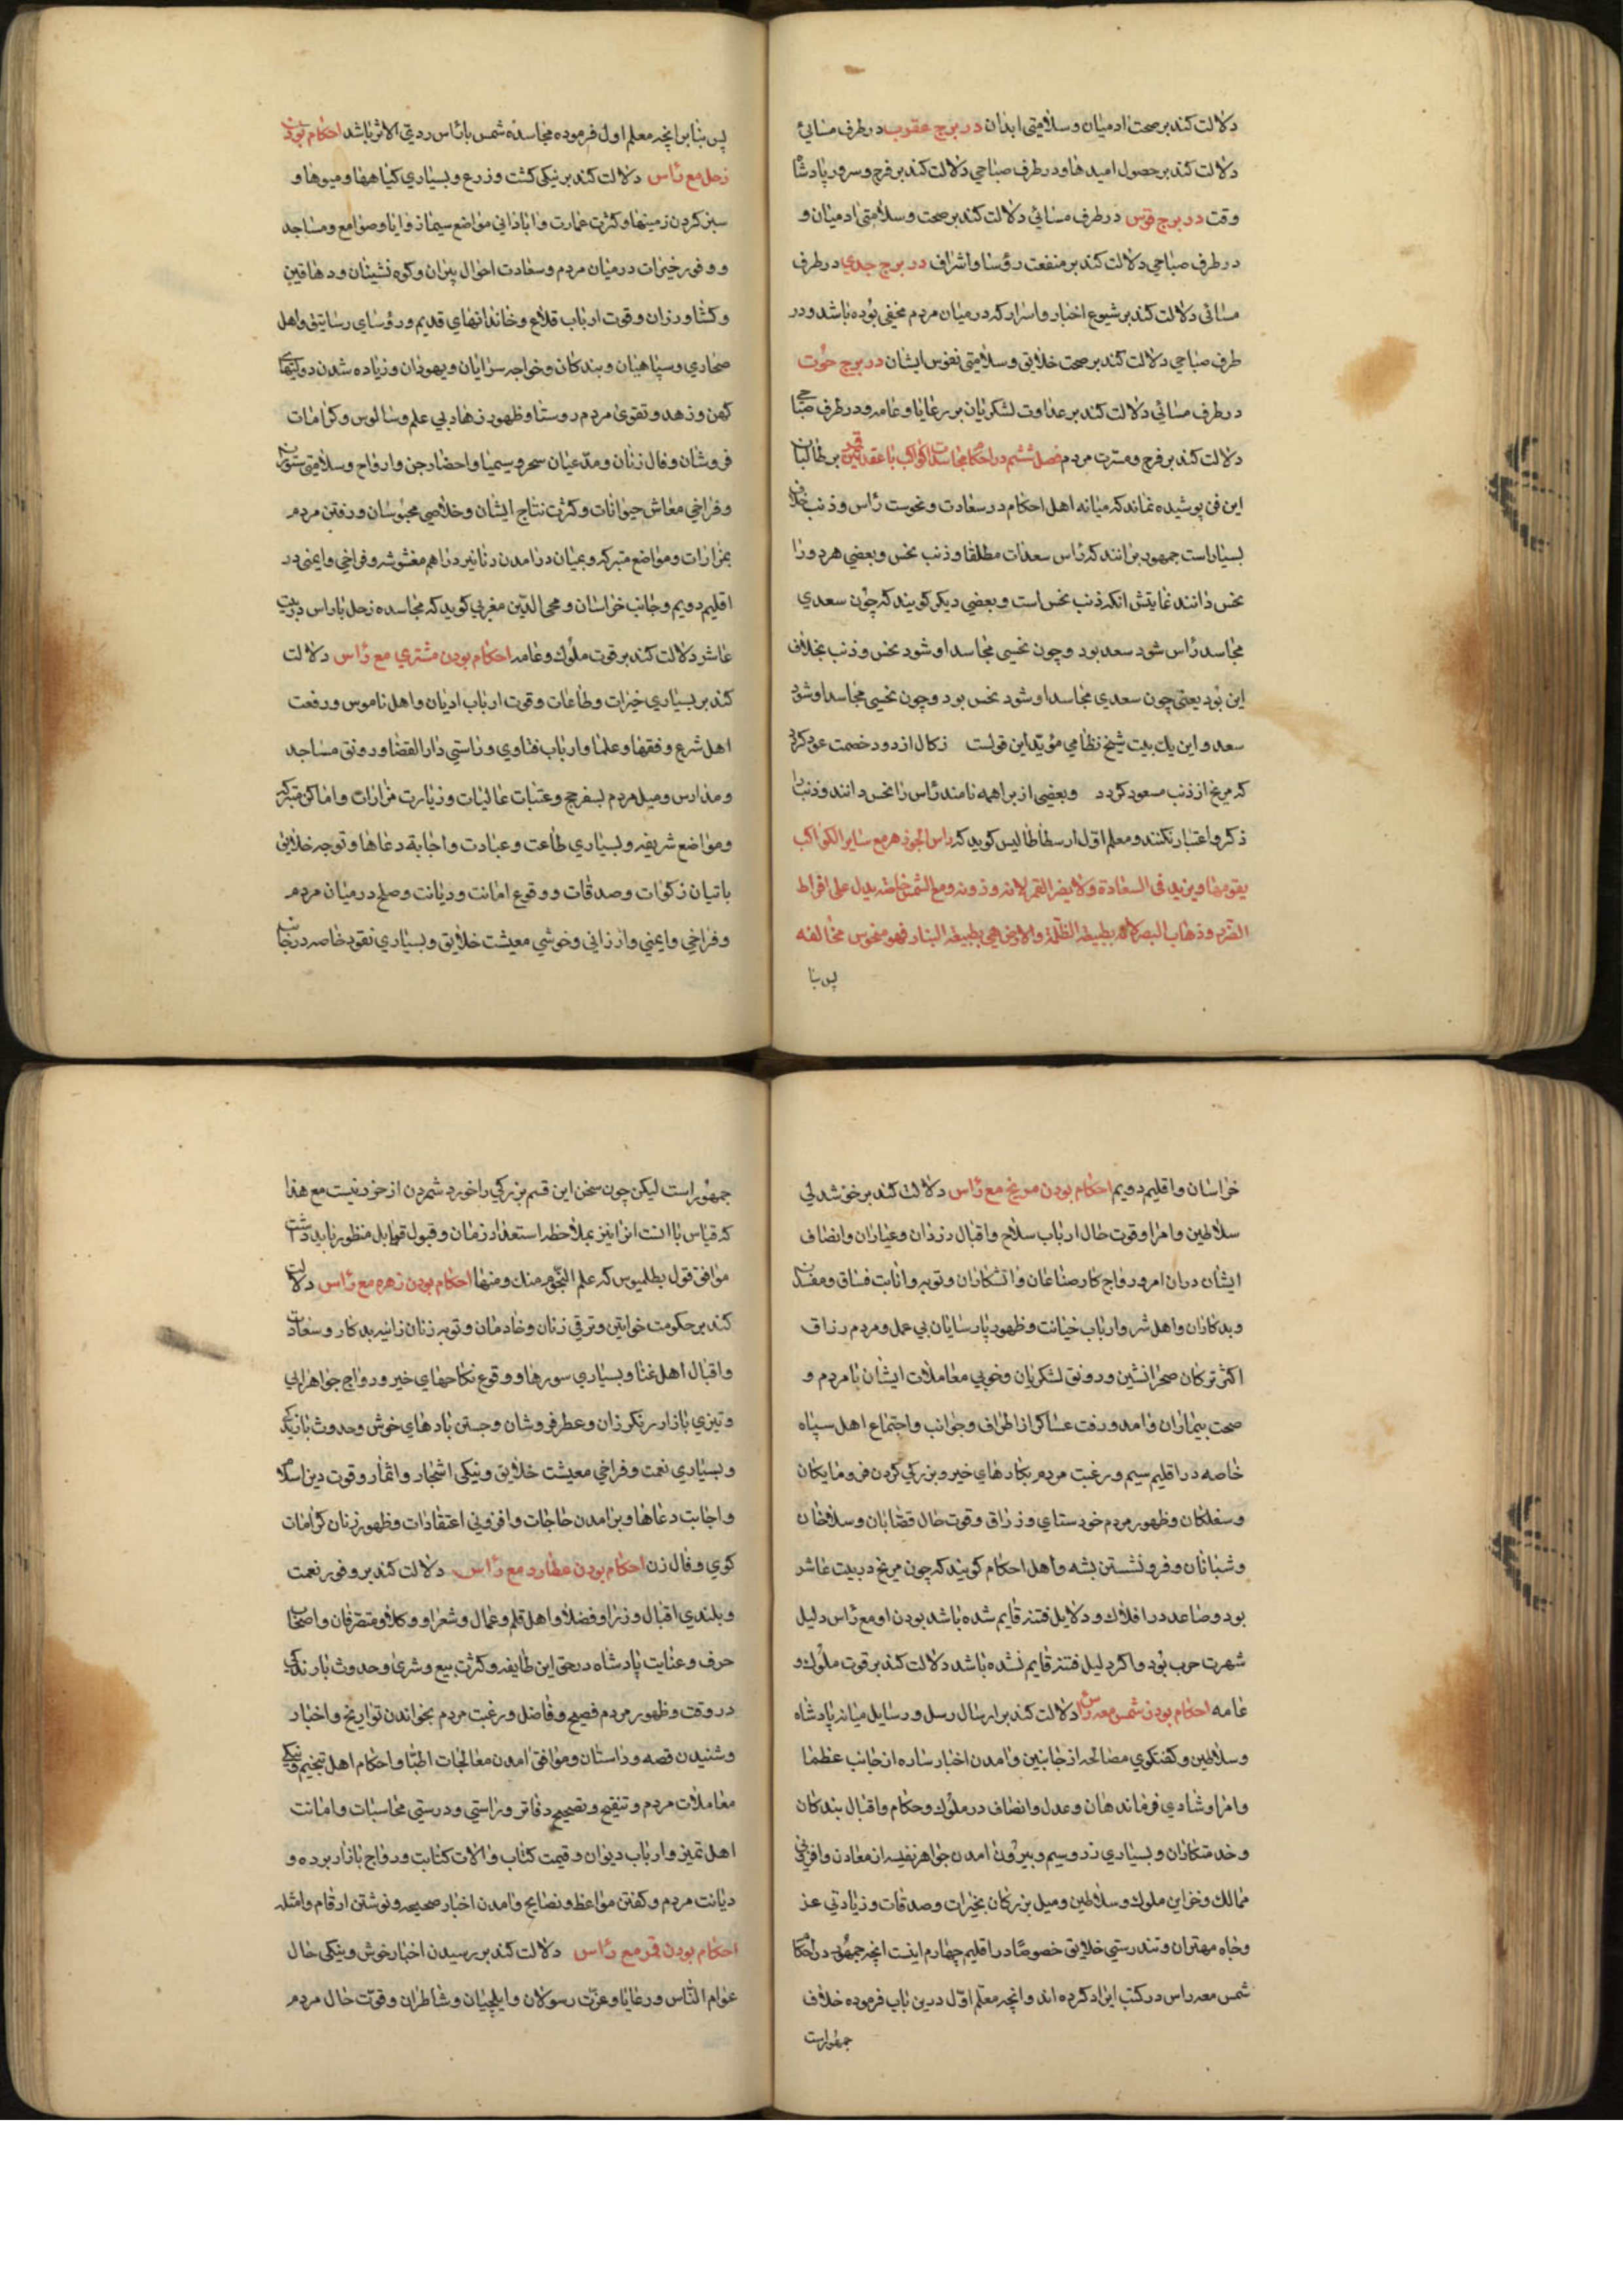 دلالت کند بر صحت ادمیان و سلامتی ابدان در برج عقرب در طرف مسائی
دلالت کند بر حصول امیدها و در طرف صباحی دلالت کند بر فرح و سرور پادشاه
وقت در برج قوس در طرف مسائی دلالت کند بر صحت و سلامتی ادمیان و
در طرف صباحی دلالت کند بر منفعت رؤسا و اشراف در برج جدی در طرف
مسائی دلالت کند بر شیوع اخبار و اسرار که در میان مردم مخفی بوده باشد و در
طرف صباحی دلالت کند بر صحت خلایق و سلامتی نفوس ایشان در برج حوت
در طرف مسائی دلالت کند بر عداوت لشکریان بر رعایا و عامه و در طرف صباحی
دلالت کند بر فرح و مسرت مردم فصل ششم در احکام مجاسدات کواکب با عقدتین قمر بر طالبان
این فن پوشیده نماند که میانه اهل احکام در سعادت و نحوست رأس و ذنب خلاف
بسیار است جمهور برانند که رأس سعدات مطلقا و ذنب نحس و بعضی هر دو را
نحس دانند غایتش انکه ذنب نحس است و بعضی دیکر کویند که چون سعدی
مجاسد رأس شود سعد بود و چون نحسی مجاسد او شود نحس و ذنب بخلاف
این بود یعنی چون سعدی مجاسد او شود نحس بود و چون نحسی مجاسد او شود
سعد و این یک بیت شیخ نظامی مؤید این قولست زکال از دود خصمت عود کردد
که مریخ از ذنب مسعود کردد و بعضی از براهمه نامند رأس را نحس دانند و ذنب را
ذکر و اعتبار نکنند و معلم اول ارسطاطالیس کوید که راس الجوزهر مع سایر الکواکب
یقومها و یزید فی السعادة ولا یضر القمر لانه وزونه ومع الشمس خاصه یدل علی افراط
الضرر و ذهاب البصر لانه بطبیعه الظلمة والارض هی بطبیعة النار فهو منحوس مخالفه
پس بنا
پس بنا بر انچه معلم اول فرموده مجاسده شمس با رأس ردیّ الاثر باشد احکام بودن
زحل مع رأس دلالت کند بر نیکی کشت و زرع و بسیاری کیاهها و میوها و
سبز کردن زمینها و کثرت عمارت و ابادانی مواضع سیما زوایا و صوامع و مساجد
و وفور خیرات در میان مردم و سعادت احوال پیران و کوه نشینان و دهاقین
و کشاورزان و قوت ارباب قلاع و خاندانهای قدیم و رؤسای رساتیق و اهل
صحاری و سپاهیان و بندکان و خواجه سرایان و یهودان و زیاده شدن دولتهای
کهن و زهد و تقوی مردم روستا و ظهور زهاد بی علم و سالوس و کرامات
فروشان و فال زنان و مدعیان سحر و سیمیا و احضار جن و ارواح و سلامتی ستوران
و فراخی معاش حیوانات و کثرت نتاج ایشان و خلاصی محبوسان و رفتن مردم
بمزارات و مواضع متبرکه و بمیان درامدن دنانیر دراهم مغشوشه و فراخی و ایمنی در
اقلیم دویم و جانب خراسان و محی الدین مغربی کوید که مجاسده زحل با راس در بیت
عاشر دلالت کند بر قوت ملوک و عامه احکام بودن مشتری مع رأس دلالت
کند بر بسیاری خیرات و طاعات و قوت ارباب ادیان و اهل ناموس و رفعت
اهل شرع و فقها و علما و ارباب فتاوی و راستی دار القضا و رونق مساجد
و مدارس و میل مردم بسفر حج و عتبات عالیات و زیارت مزارات و اماکن متبرکه
و مواضع شریفه و بسیاری طاعت و عبادت و اجابة دعاها و توجه خلایق
باتیان زکوات و صدقات و وقوع امانت و دیانت و صلح در میان مردم
و فراخی و ایمنی و ارزانی و خوشی معیشت خلایق و بسیاری نقود خاصه در جانب
خراسان و اقلیم دویم احکام بودن مریخ مع رأس دلالت کند بر خوشدلی
سلاطین و امرا و قوت حال ارباب سلاح و اقبال دزدان و عیاران و انصاف
ایشان در ان امر و رواج کار صناعان و اتشکاران و توبه و انابت فساق و مفسدان
و بدکاران و اهل شر و ارباب خیانت و ظهور پارسایان بی عمل و مردم رزاق
اکثر ترکان صحرانشین و رونق لشکریان و خوبی معاملات ایشان با مردم و
صحت بیماران و امد و رفت عساکر از اطراف و جوانب و اجتماع اهل سپاه
خاصه در اقلیم سیم و رغبت مردم بکارهای خیر و بزرکی کردن فرومایکان
و سفلکان و ظهور مردم خودستای و زراق و قوت حال قصابان و سلاخان
و شبانان و فرو نشستن بشه و اهل احکام کویند که چون مریخ در بیت عاشر
بود و صاعد در افلاک و دلایل فتنه قایم شده باشد بودن او مع رأس دلیل
شهرت حرب بود و اکر دلیل فتنه قایم نشده باشد دلالت کند بر قوت ملوک و
عامه احکام بودن شمس معه رأس دلالت کند بر ارسال رسل و رسایل میانه پادشاه
و سلاطین و کفتکوی مصالحه از جانبین و امدن اخبار ساره از جانب عظما
و امرا و شادی فرماندهان و عدل و انصاف در ملوک و حکام و اقبال بندکان
و خدمتکاران و بسیاری زر و سیم و بیرون امدن جواهر نفیسه از معادن و افزونی
ممالک و خزاین ملوک و سلاطین و میل بزرکان بخیرات و صدقات و زیادتی عز
و جاه مهتران و تندرستی خلایق خصوصًا در اقلیم چهارم اینست انچه جمهور در احکام
شمس معه راس در کتب ایراد کرده اند و انچه معلم اوّل درین باب فرموده خلاف
جمهور است
جمهور است لیکن چون سخن این قسم بزرکی را خورد شمردن از خرد نیست مع هذا
که قیاس با انست انرا نیز بملاحظه استعداد زمان و قبول قوابل منظور باید داشت
موافق قول بطلمیوس که علم النجوم منک و منها احکام بودن زهره مع رأس دلالت
کند بر حکومت خواتین و ترقی زنان و خادمان و توبه زنان زانیه بدکار و سعادت
و اقبال اهل غنا و بسیاری سورها و وقوع نکاحهای خیر و رواج جواهر ابی
و تیزی بازار رنکرزان و عطر فروشان و جستن بادهای خوش و حدوث بارندکی
و بسیاری نعمت و فراخی معیشت خلایق و نیکی اشجار و اثمار و قوت دین اسلام
و اجابت دعاها و برامدن حاجات و افزونی اعتقادات و ظهور زنان کرامات
کوی و فال زن احکام بودن عطارد مع رأس دلالت کند بر وفور نعمت
و بلندی اقبال وزرا و فضلا و اهل قلم و عمال و شعرا و وکلا و متصرفان و اصحاب
حرف و عنایت پادشاه در حق این طایفه و کثرت بیع و شری و حدوث بارندکی
در وقت و ظهور مردم فصیح و فاضل و رغبت مردم بخواندن تواریخ و اخبار
و شنیدن قصه و داستان و موافق امدن معالجات اطبا و احکام اهل تنجیم و نیکی
معاملات مردم و تنقیح و تصحیح دفاتر و راستی و درستی محاسبات و امانت
اهل تمیز و ارباب دیوان و قیمت کتاب و الات کتابت و رواج بازار برده و
دیانت مردم و کفتن مواعظ و نصایح و امدن اخبار صحیحه و نوشتن ارقام و امثله
احکام بودن قمر مع رأس دلالت کند بر رسیدن اخبار خوش و نیکی حال
عوام النّاس و رعایا و عزّت رسولان و ایلچیان و شاطران و قوّت حال مردم